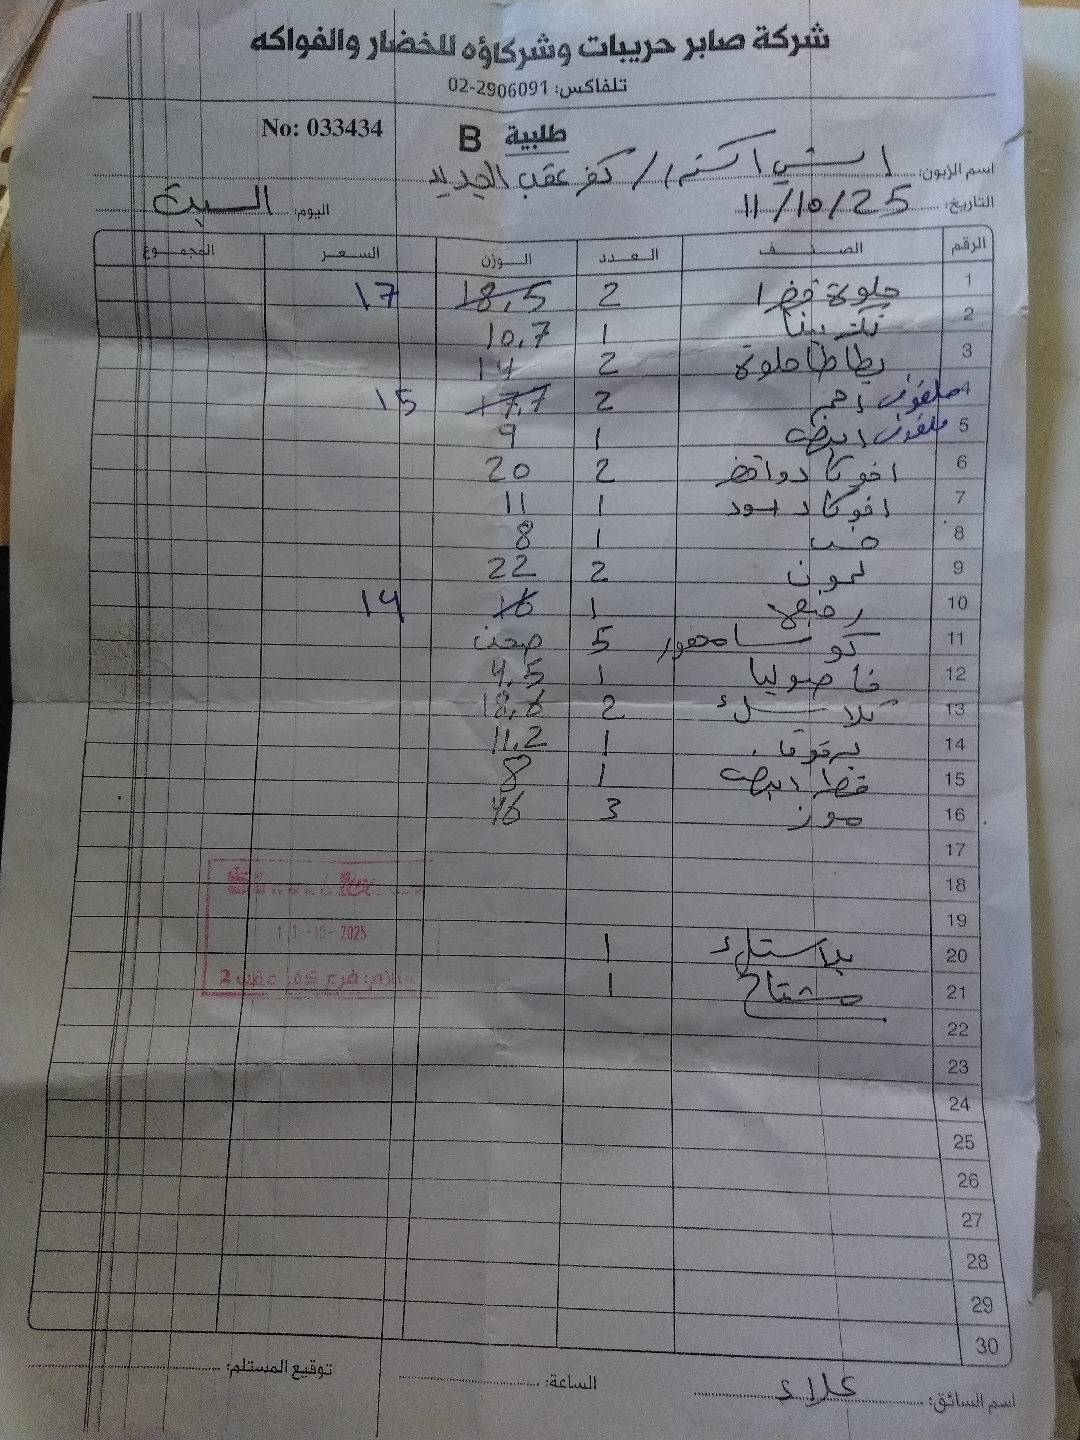 شركة صابر حريبات وشركاؤه للخضار والفواكه
تلفاكس: 02-2906091
No: 033434
طلبية B
اسم الزبون: / كفر عقب الجديد
التاريخ: 11/10/25 اليوم: السبت
الرقم الصنف العدد الوزن السعر المجموع
1 2 18.5 17
2 1 10.7
3 بطاطا حلوة 2 14
4 ملفوف احمر 2 17.7 15
5 ملفوف ابيض 1 9
6 افوكادو اخضر 2 20
7 افوكاد اسود 1 11
8 1 8
9 ليمون 2 22
10 1 16 14
11 5 صحن
12 فاصوليا 1 4.5
13 2 18.6
14 برقوق 1 11.2
15 ابيض 1 8
16 موز 3 46
17
18
19
20 1
21 مشتاح 1
22
23
24
25
26
27
28
29
30
11 -10- 2025
فرع كفر عقب 2
اسم السائق: علاء الساعة: توقيع المستلم: